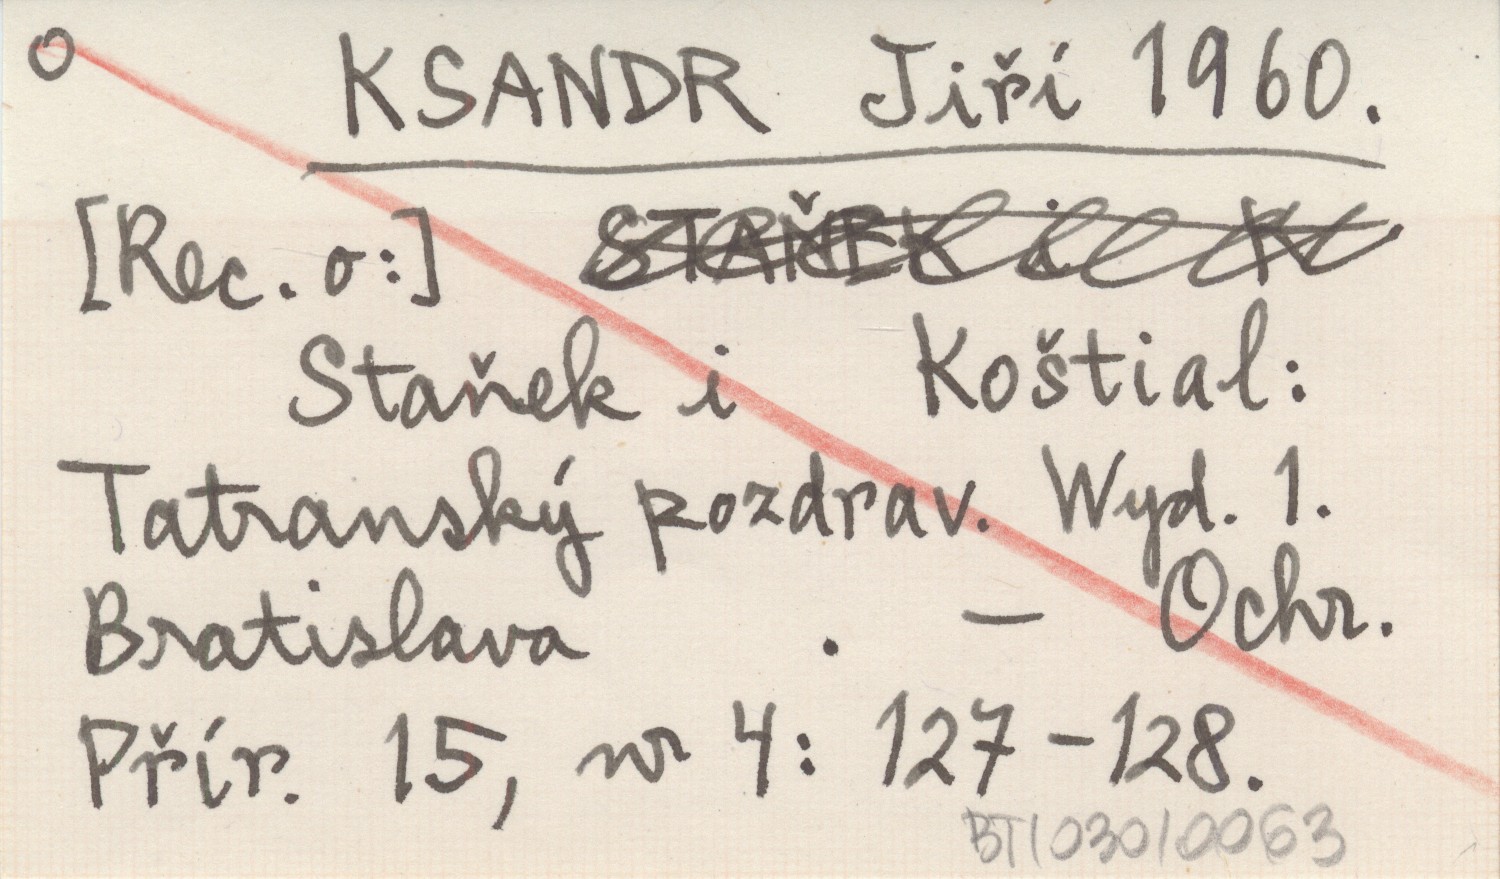 KSANDR Jiří 1960.
[Rec. o:] STAŇEK i K
Staňek i Koštial:
Tatranský pozdrav. Wyd. 1.
Bratislava . — Ochr.
Přír. 15, nr 4: 127-128.
BT/030/0063